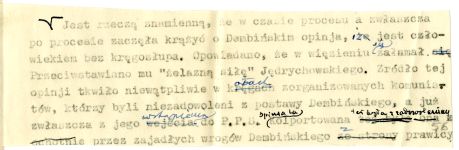 Jest rzeczą znamienną, że w czasie procesu a zwłaszcza
po procesie zaczęła krążyć o Dembińskim opinja, iże jest czło-
wiekiem bez kręgosłupa. Opowiadano, że w więzieniu załamał się
Przeciwstawiano mu "żelazną siłę" Jędrychowskiego. Źródło tej
opinji tkwiło niewątpliwie w zorganizowanych komunis-
tów, którzy byli niezadowoleni z postawy Dembińskiego, a już
wstąpienia opinia ta
zwłaszcza z jego wejścia do P.P.S. kolportowana
ochotnie przez zajadłych wrogów Dembińskiego z ze strony prawicy